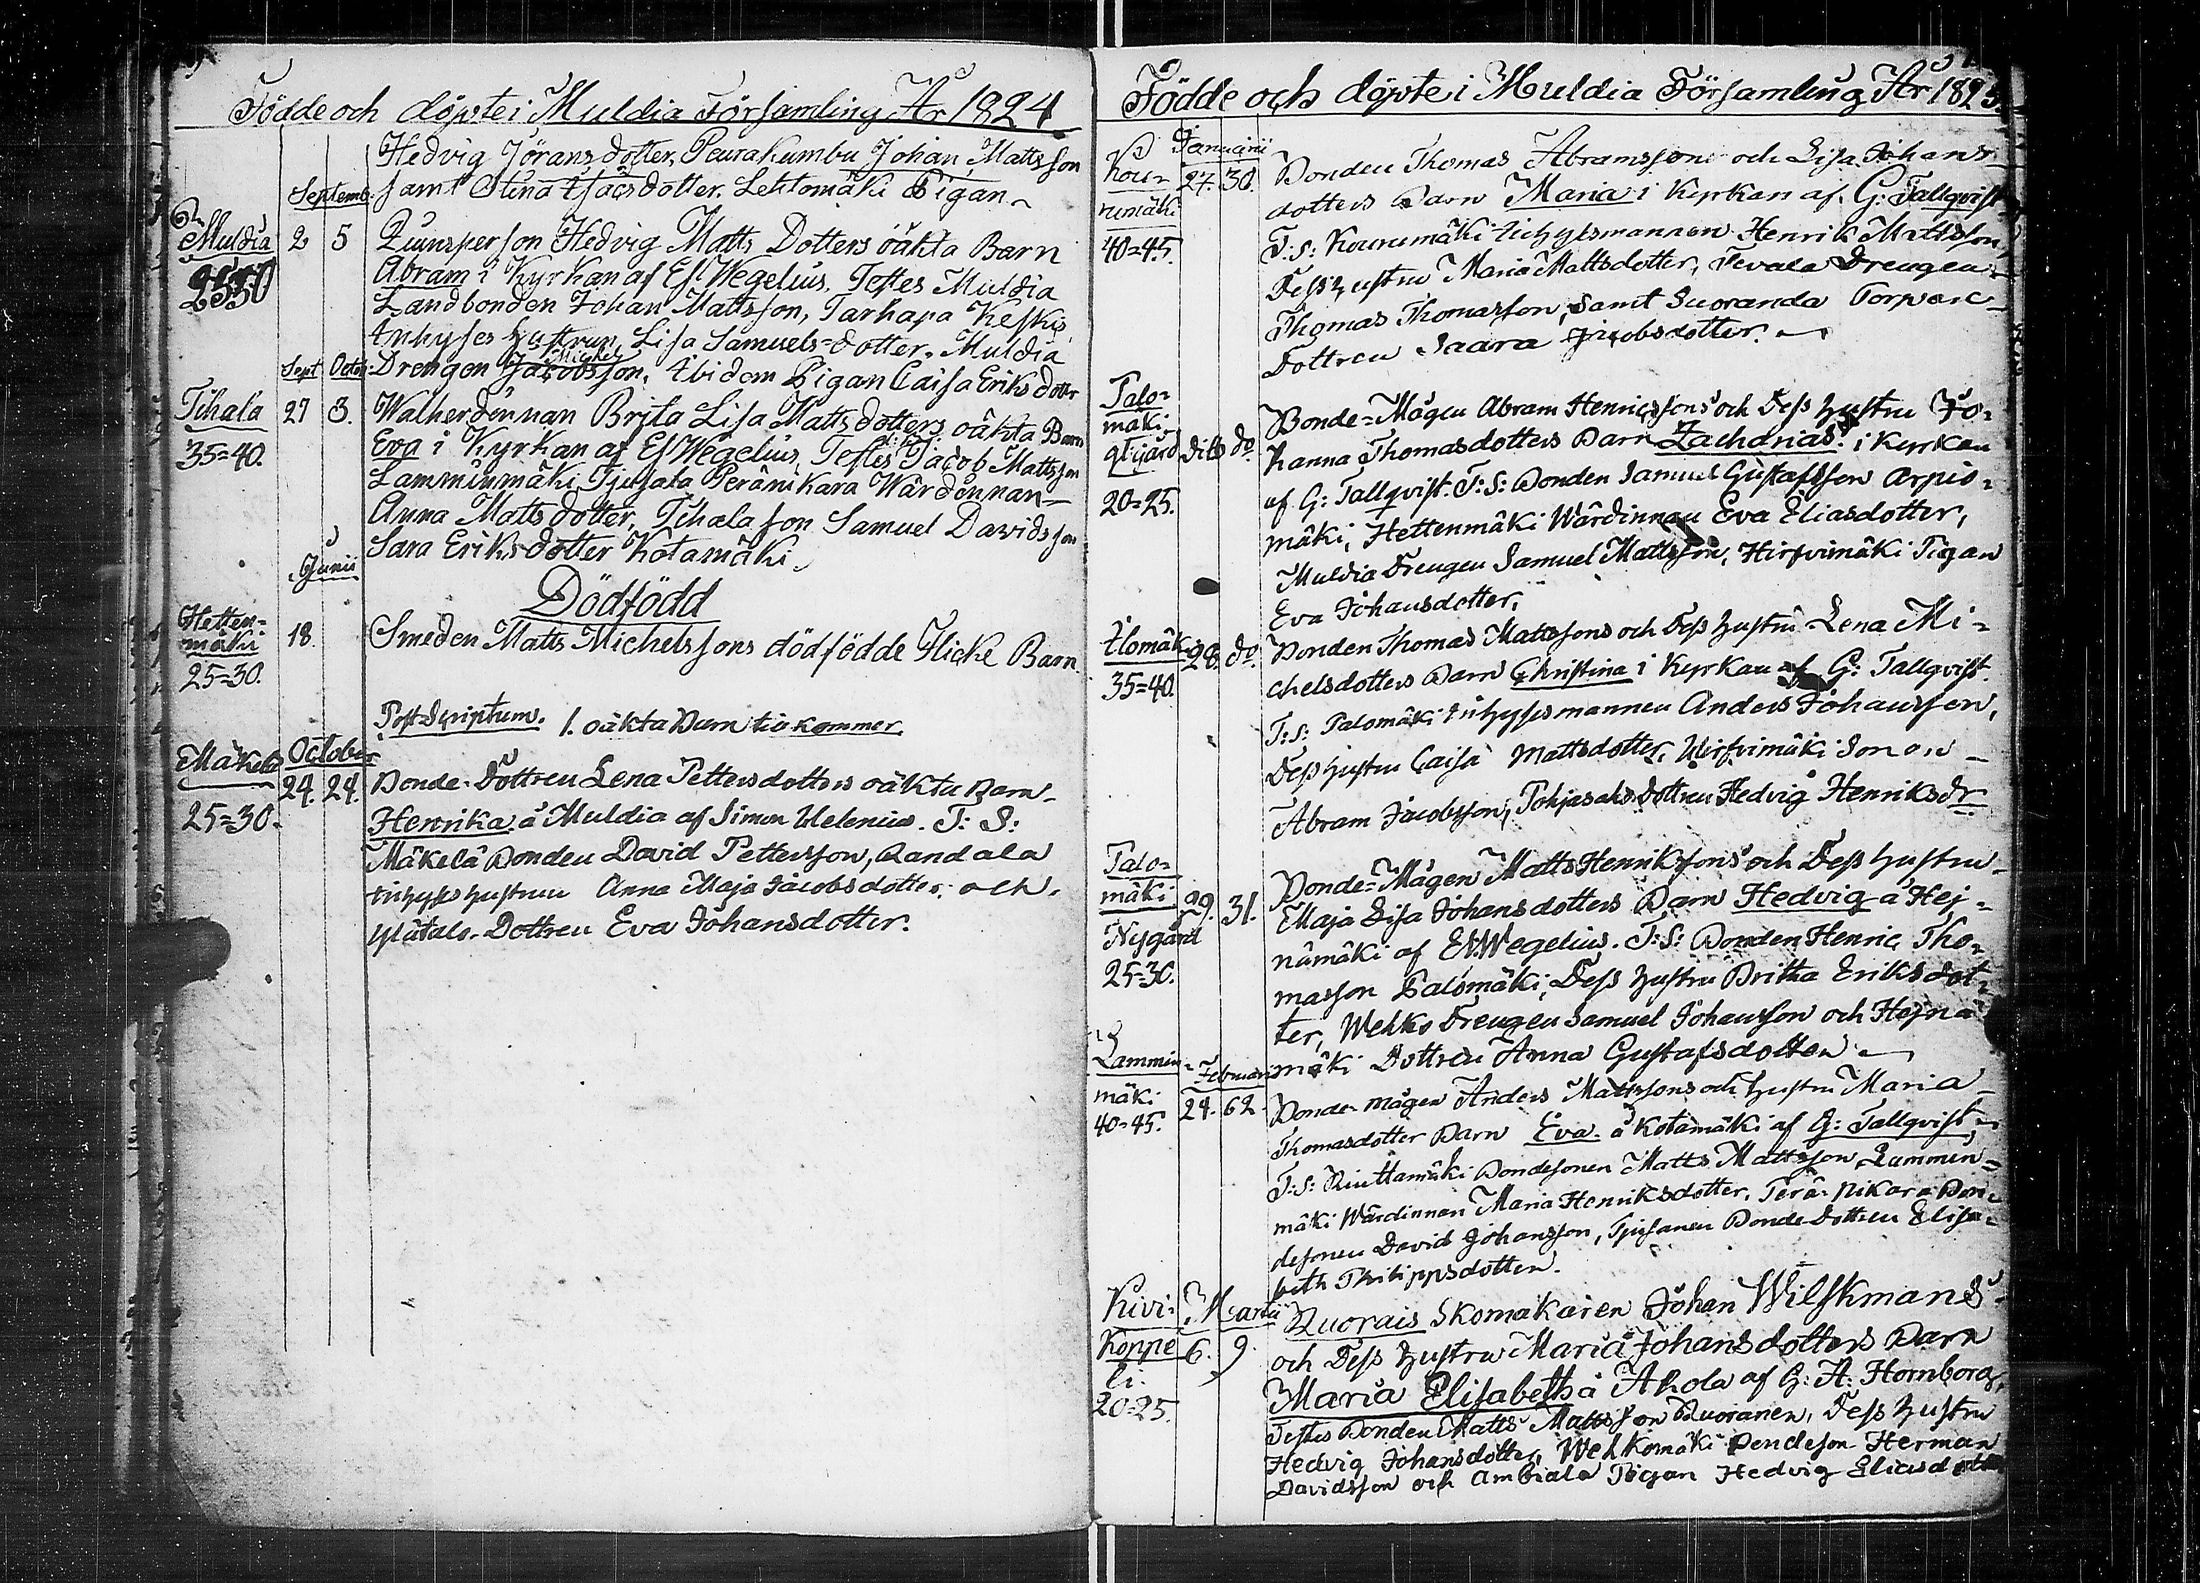 Födde och döpte i Muldia Församling År 1824
Hedvig Jörans dotter, Peurakumbu Johan Mattsson
Septemb. samt Stina Isacsdotter. Lehtomäki Pigan
Muldia 2 5 Quinsperson Hedvig Matts Dotters oäkta Barn
25=30 Abram i Kyrkan af Ef Wegelius. Testes Muldia
Landbonden Johan Mattsson, Tarhapa Keskis
Inhyses hustrun, Lisa Samuels=dotter. Muldia
Michel
Sept Octob. Drengen Jacobsson, Ibidem Pigan Caisa Eriks dotter
Tihala 27 3. Walherdennan Brita Lisa Matts dotters oäkta Barn
35=40. Eva i Kyrkan af Ef Wegelius, Testes Jacob Mattsson
Lamminmäki, Tjusala Peränikara Wärdennan
Anna Matts dotter, Tihala son Samuel Davidsson
Sara Eriksdotter Kotamäki.
Junii
Dödfödd
Hetten=
mäki 18. Smeden Matts Michelssons dödfödde Flicke Barn
25=30.
Post Scriptum. 1. oäkta Barn tilkommer.
Mäkelä October
24. 24. Bonde-Dottren Lena Pettersdotters oäkta Barn
25=30. Henrika å Muldia af Simon Helenius. T: S:
Mäkelä Bonden David Pettersson, Randala
inhyses hustrun Anna Maja Jacobsdotter och
Dottren Eva Johansdotter.
Födde och döpte i Muldia Församling År 1825
Januarii
Kou= 27. 30. Bonden Thomas Abramssons och Lisa Johans
rumäki dotters Barn Maria i Kyrkan af G: Tallqvist
40=45. T:S: Kourumäki inhysesmannen Henrik Mattsson,
Dess hustru Maria Mattsdotter, Tevala Drengen
Thomas Thomasson, samt Suoranda Torpare
Dottren Saara Jacobsdotter.
Palo=
mäki Bonde=Mågen Abram Henricssons och Dess hustru Jo=
gl:gård dito do hanna Thomasdotters Barn Zacharias i Kyrkan
20=25. af G: Tallqvist. T:S: Bonden Samuel Gustafsson Arpio=
mäki, Hettenmäki Wärdinnan Eva Eliasdotter,
Muldia Drengen Samuel Mattsson, Hirfvimäki Pigan
Eva Johansdotter.
Ilomäki 28. do. Bonden Thomas Mattssons och Dess hustru Lena Mi=
35=40. chelsdotters Barn Christina i Kyrkan af G: Tallqvist.
T:S: Palomäki inhysesmannen Anders Johansson,
Dess hustru Caisa Mattsdotter, Hirfvimäki Sonen
Abram Jacobsson, Pohjasaho dottren Hedvig Henriksdr
Palo= Bonde=Mågen Matts Henrikssons och Dess hustru
mäki 29. 31. Maja Lisa Johansdotters Barn Hedvig å Hej=
Nygård nämäki af Ef Wegelius. T:S: Bonden Henric Tho=
25=30. masson Palomäki, Dess hustru Britha Eriksdot=
ter, Wehko Drengen Samuel Johansson och Hejnä
Lammin= Februarii mäki Dottren Anna Gustafsdotter
mäki 24. 62. Bonde-mågen Anders Mattssons och hustru Maria
40=45. Thomasdotter Barn Eva å Kotamäki af G: Tallqvist
T:S: Riuttamäki Bondesonen Matts Mattsson, Lammin=
mäki Wärdinnan Maria Henriksdotter, Perä-Nikara Bon=
desonen David Johansson, Tjusanen Bonde Dottren Elisa=
beth Philippsdotter.
Kivi= Martii Ruorais Skomakaren Johan Wilskmans
Koppe 6. 9. och Dess hustru Maria Johansdotters Barn
li. Maria Elisabeth å Ahola af G: A: Homborg,
20=25. Testes Bonden Matts Mattsson Ruoranen, Dess hustru
Hedvig Johansdotter, Wehkomäki Bondeson Herman
Davidsson och Ambiala Pigan Hedvig Eliasdotter